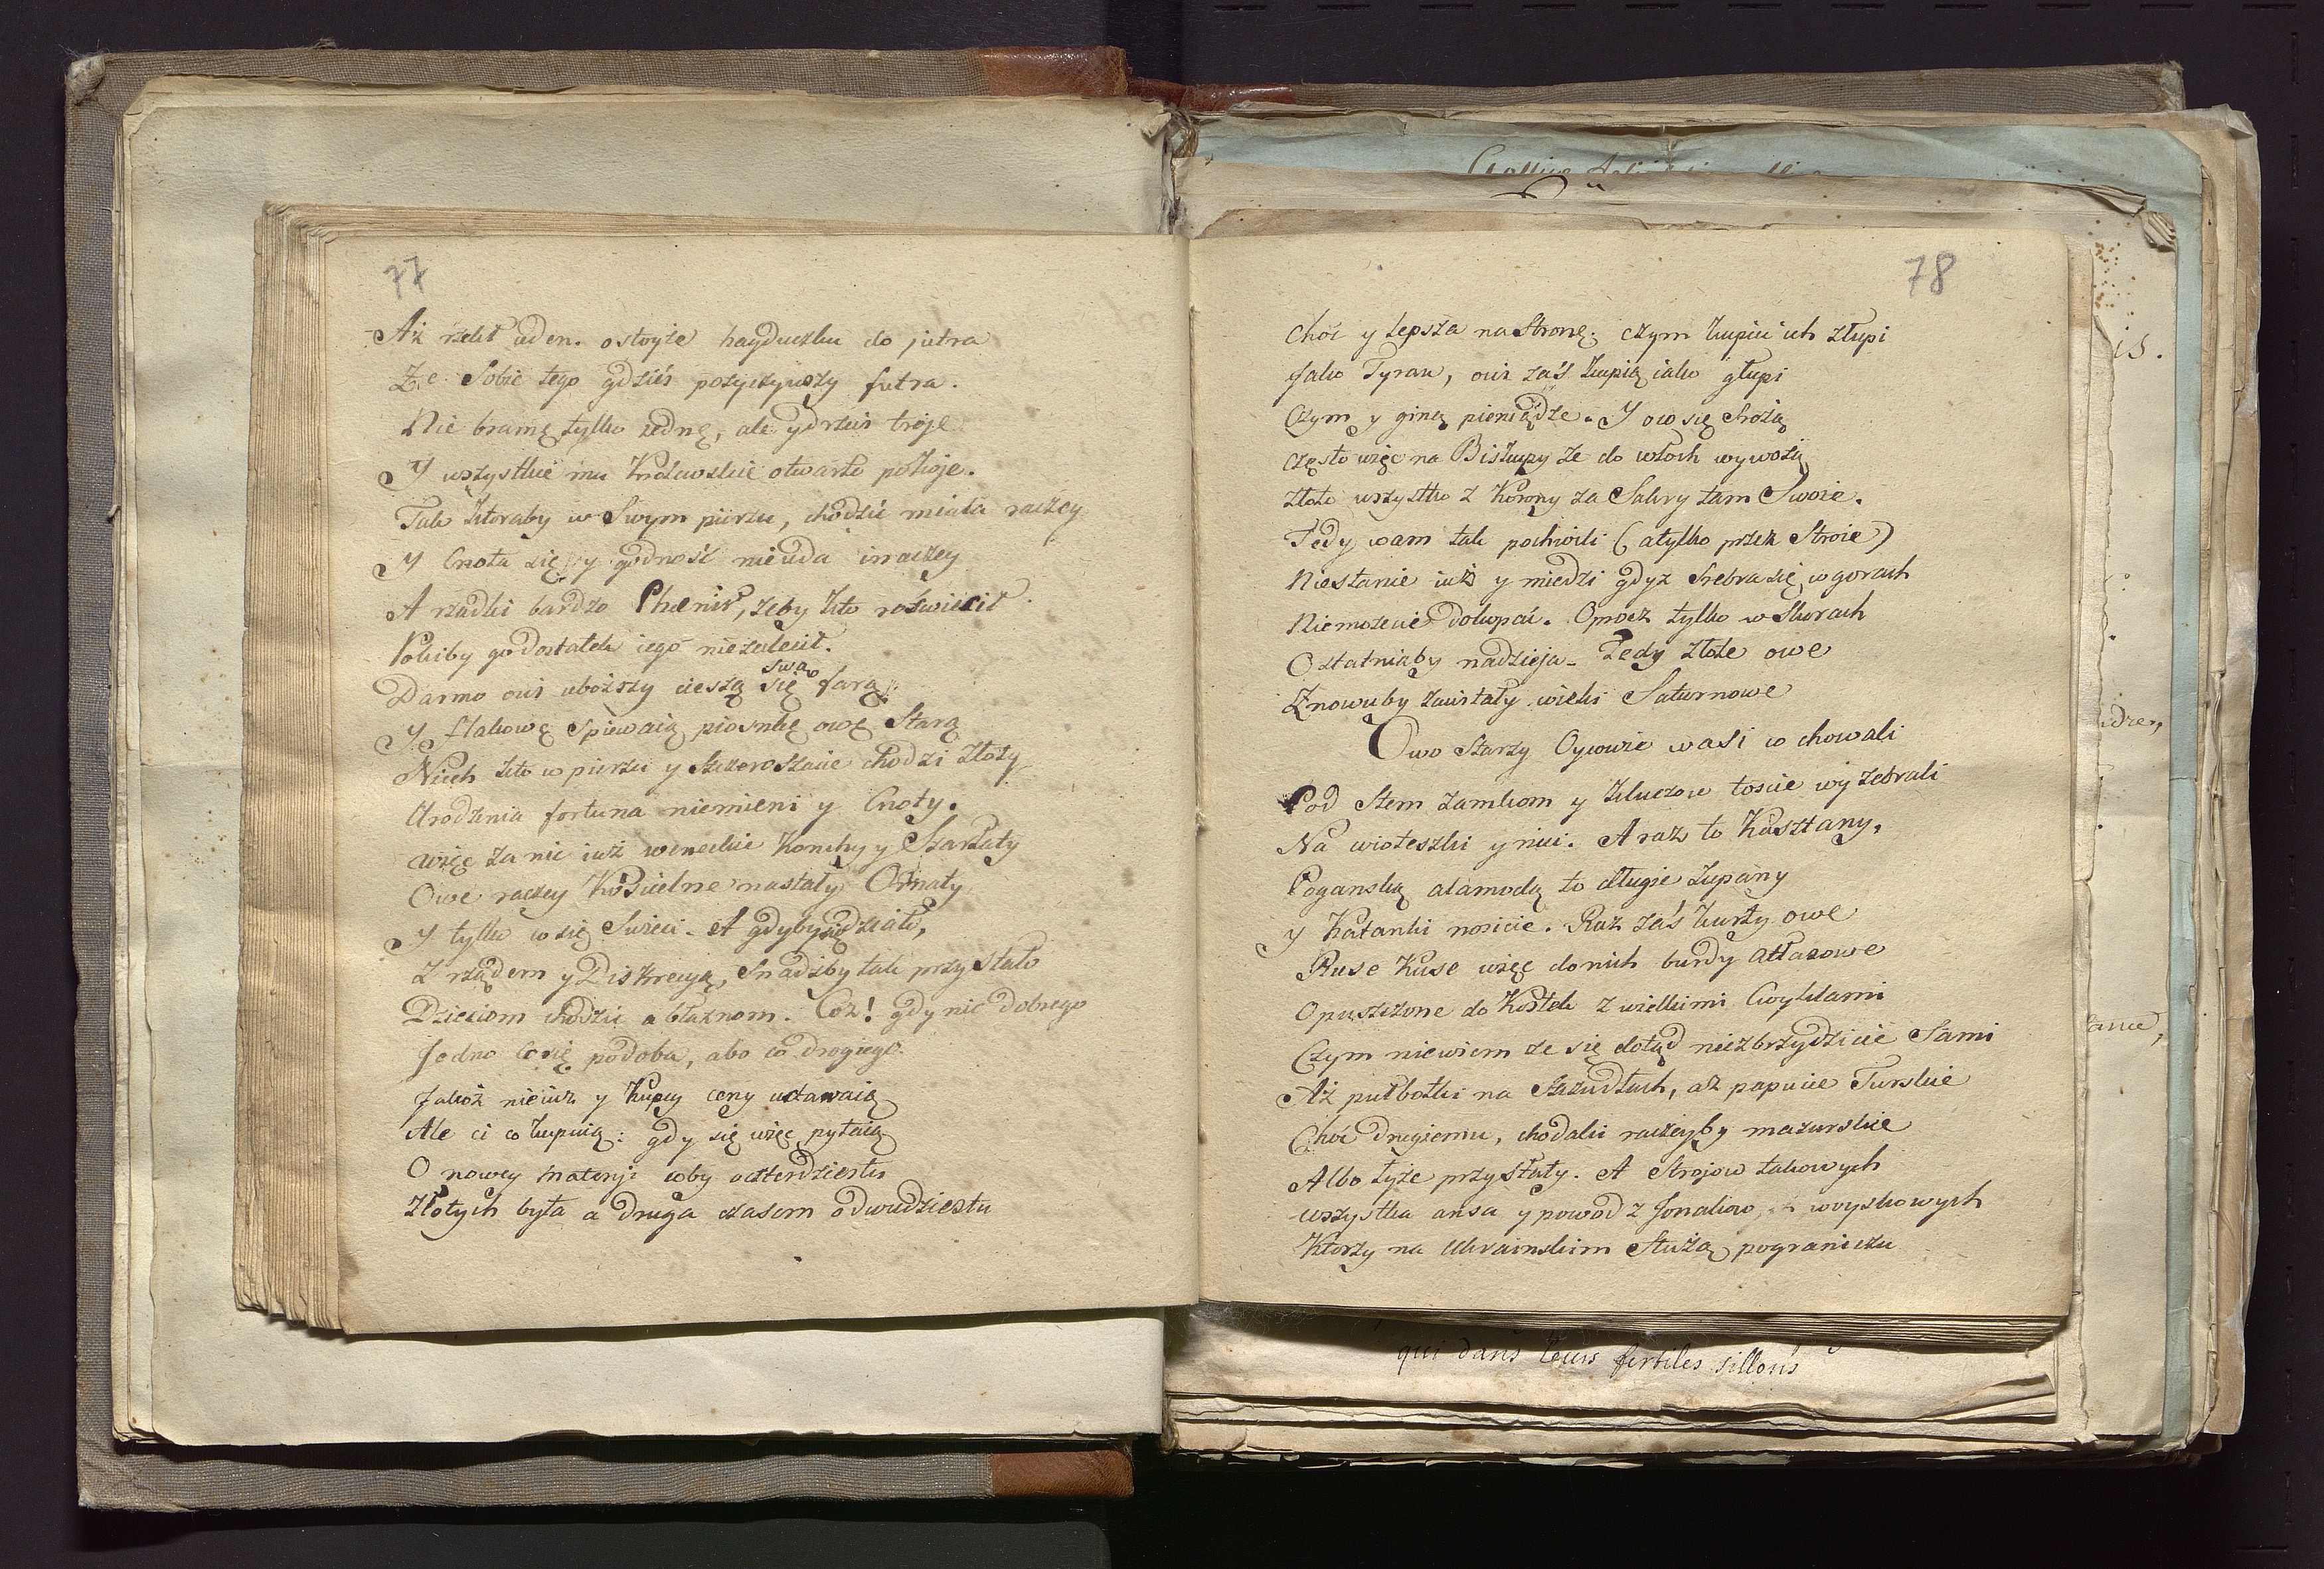 77
Aż rzekł ieden. ostoyże hayduczku do jutra
Że Sobie tego gdzieś pożyczywszy futra.
Nie bramę tylko iednę, ale y drzwi troje
Y wszystkie mu Krolewskie otwarto pokoje.
Tak ktoraby w Swym pierzu, chodzić miała raczey
Y Cnota się y godność nieuda inaczey
A rzadki bardzo Phenix, żeby kto roświecił
Pokiby go dostatek iego niezalecił.
Darmo oni uboższy cieszą się swą farą.
Y Flakowę Spiewaią piosnkę owę Starą
Niech kto w pierzu y Szczeroszacie chodzi złoty
Urodzenia fortuna niemieni y Cnoty.
więc za nic iuż weneckie Konchy y Szarłaty
Owe raczey Kościelne nastały Ornaty
Y tylko co się Swieci. A gdyby się działo,
Z rządem y Diskrecyą, Snadźby tak przystało
Dzieciom chodzić a błaznom. Coż! gdy nic dobrego
Jedno co się podoba, abo co drogiego.
Jakoż nie iuż y Kupcy ceny udawaią
Ale ci co kupuią: gdy się więc pytaią
O nowey materyi coby czterdziestu
Złotych była a druga czasem odwudziestu
78
Choć y lepsza na Stronę. czym kupić ich złupi
Jako Tyran, oni zaś kupią iako głupi
Czym y giną pieniądze. Y ow się Srożą
często więc na Biskupy że do włoch wywożą
złoto wszystko z Korony za Sakry tam Swoie.
Tedy wam tak pochwili (a tylko przez Stroie)
Niestanie iuż y miedzi gdyż Srebra się w gorach
Niemożecie dokopać. Oprocz tylko w Skorach
Ostatniaby nadzieja. Tedy złote owe
Znowuby zawstały wieki Saturnowe
Owo Starzy Oycowie wasi co chowali
Pod Stem zamkom y kluczow toście wyżebrali
Na wioteszki y nici. A raz to Kasztany,
Pogańską alamodą to długie żupany
Y Katanki nosicie. Raz zaś kurty owe
Kuse Kuse więc do nich burdy atłasowe
Opuszczone do Kostek z wielkimi Cwyklami
Czym niewiem że się dotąd niezbrzydzicie Sami
Aż pułbotki na Szczudłach, aż papucie Turskie
Choć drugiemu, chodaki raczeyby mazurskie
Albo łyże przystały. A Strojow takowych
wszystka ansa y powod z Jonakow woyskowych
Ktorzy na Ukrainskim Służą pograniczu
qui dans leurs fertiles sillons
is.